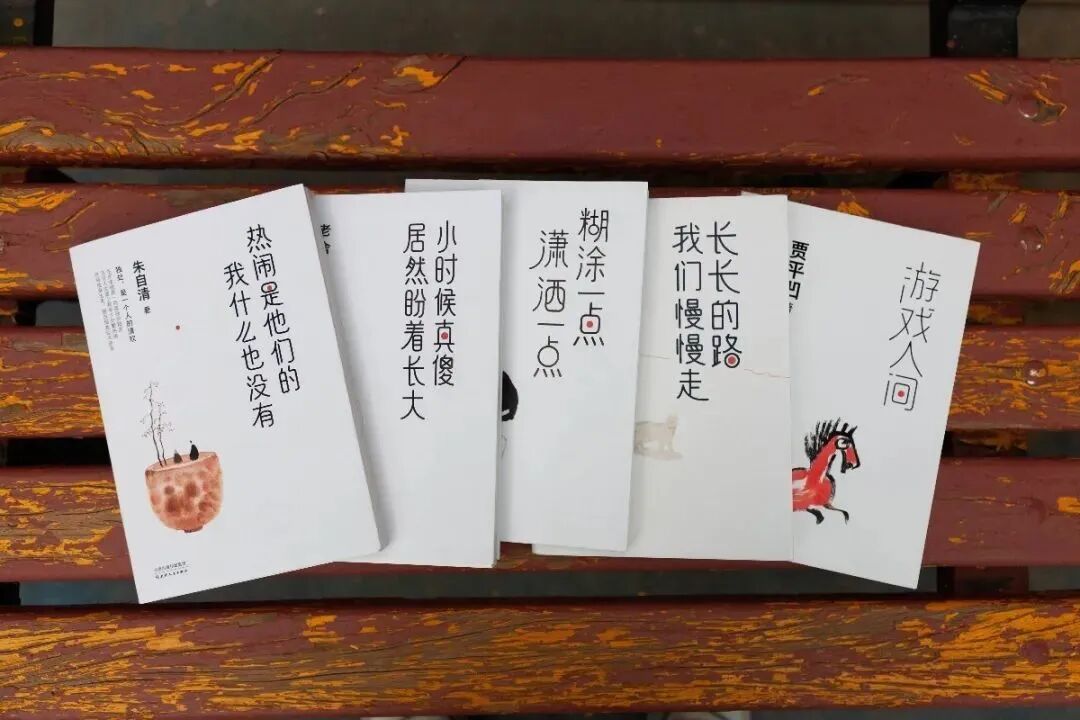 热闹是他们的
我什么也没有
朱自清 著
独处,是一个人的清欢
老舍
小时候真傻
居然盼着长大
糊涂一点
潇洒一点
长长的路
我们慢慢走
贾平凹
游戏人间